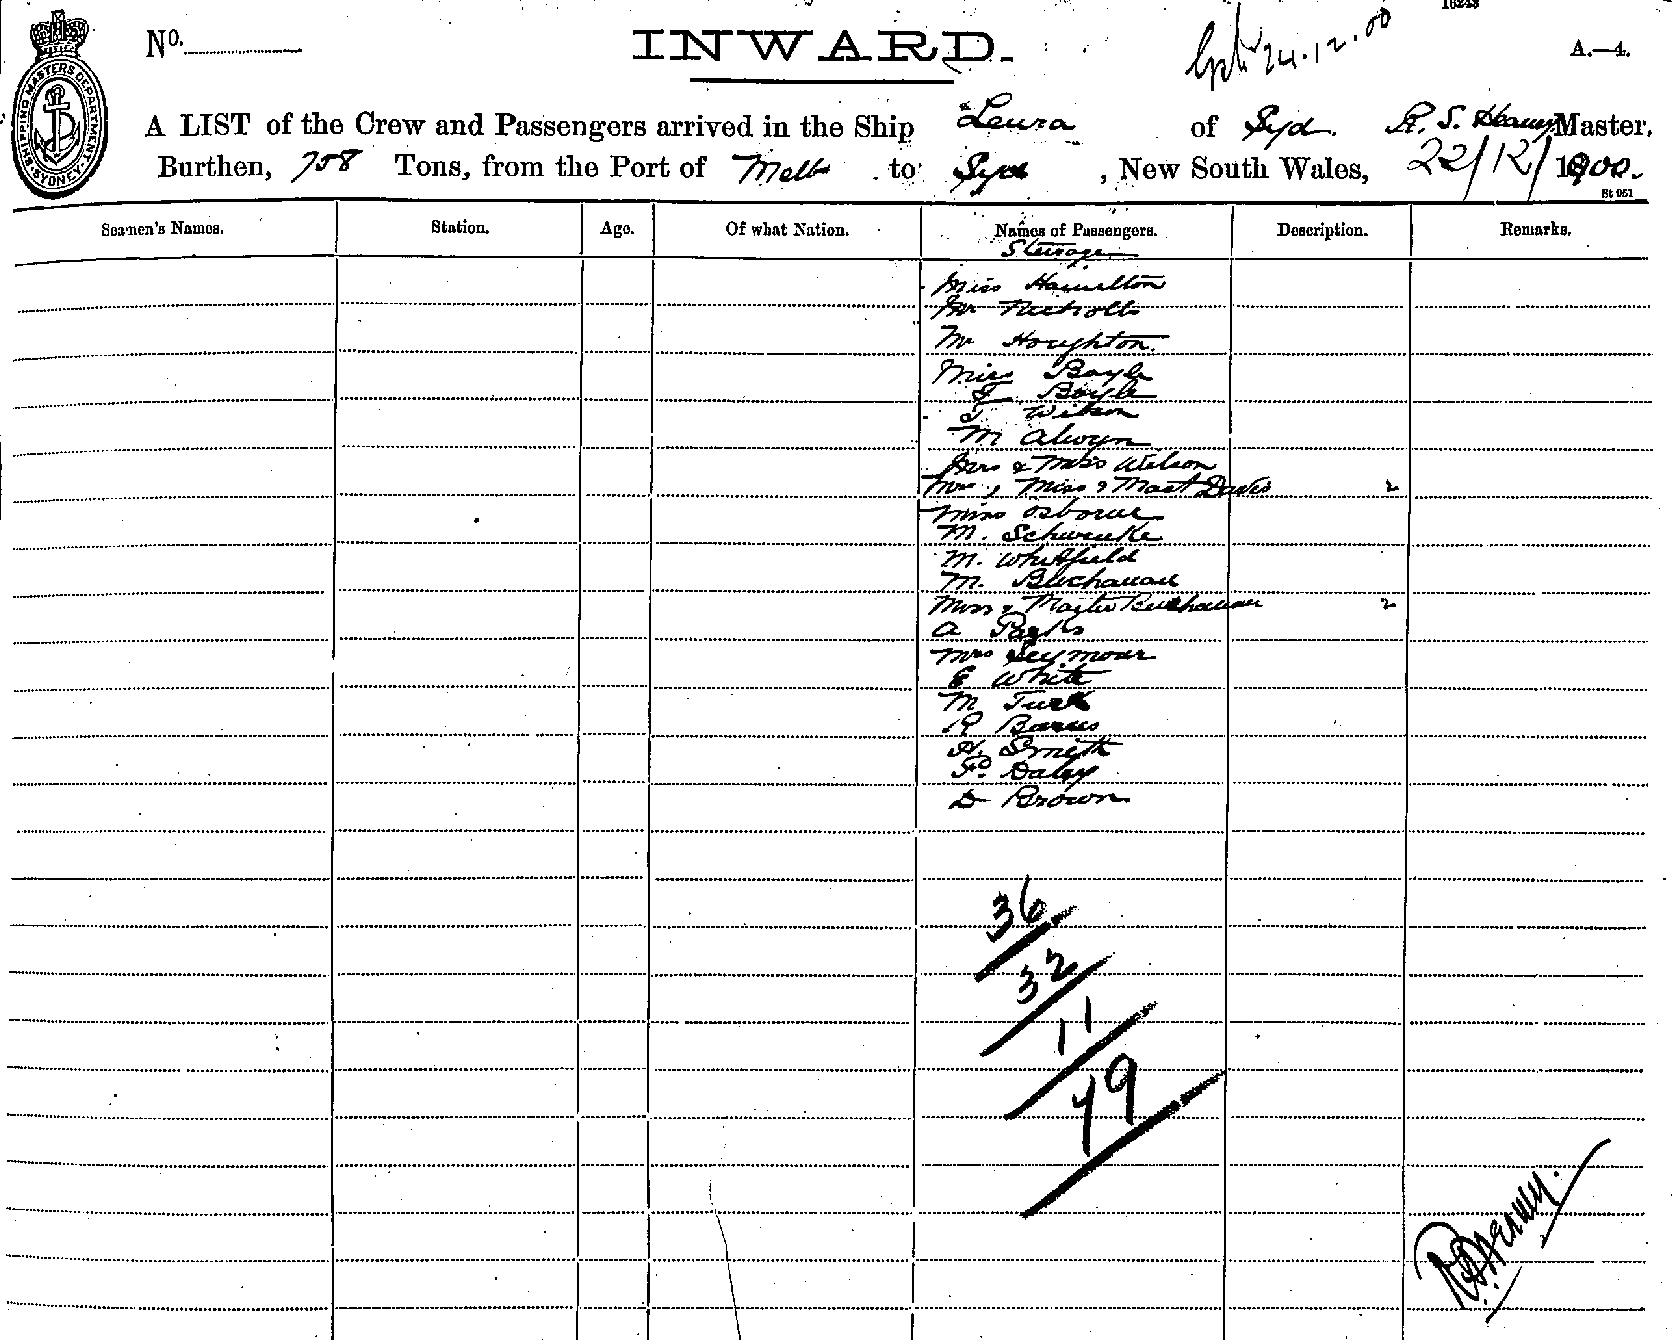 16243
No.
INWARD.
24.12.00
A.—4.
SHIPPING MASTERS DEPARTMENT SYDNEY
A LIST of the Crew and Passengers arrived in the Ship Leura of Syd. R. S. Master,
Burthen, 708 Tons, from the Port of Melb to Syd, New South Wales, 22/12/1900.
St 951
Seamen's Names. Station. Age. Of what Nation. Names of Passengers. Description. Remarks.
Steerage
Miss Hamilton
Mr Nicholls
Mr Houghton.
Miss Boyle
Boyle
T Wilson
M Alwyn
Mrs & Miss Wilson
Mrs, Miss & Mast Davis 2
Miss Osborne
M. Schwenke
M. Whitfield
M. Buchanan
Miss & Master Buchanan 2
A Parks
Mrs Seymour
E White
M Turk
R Barnes
H. Smith
P. Daley
D Brown
36
32
11
79